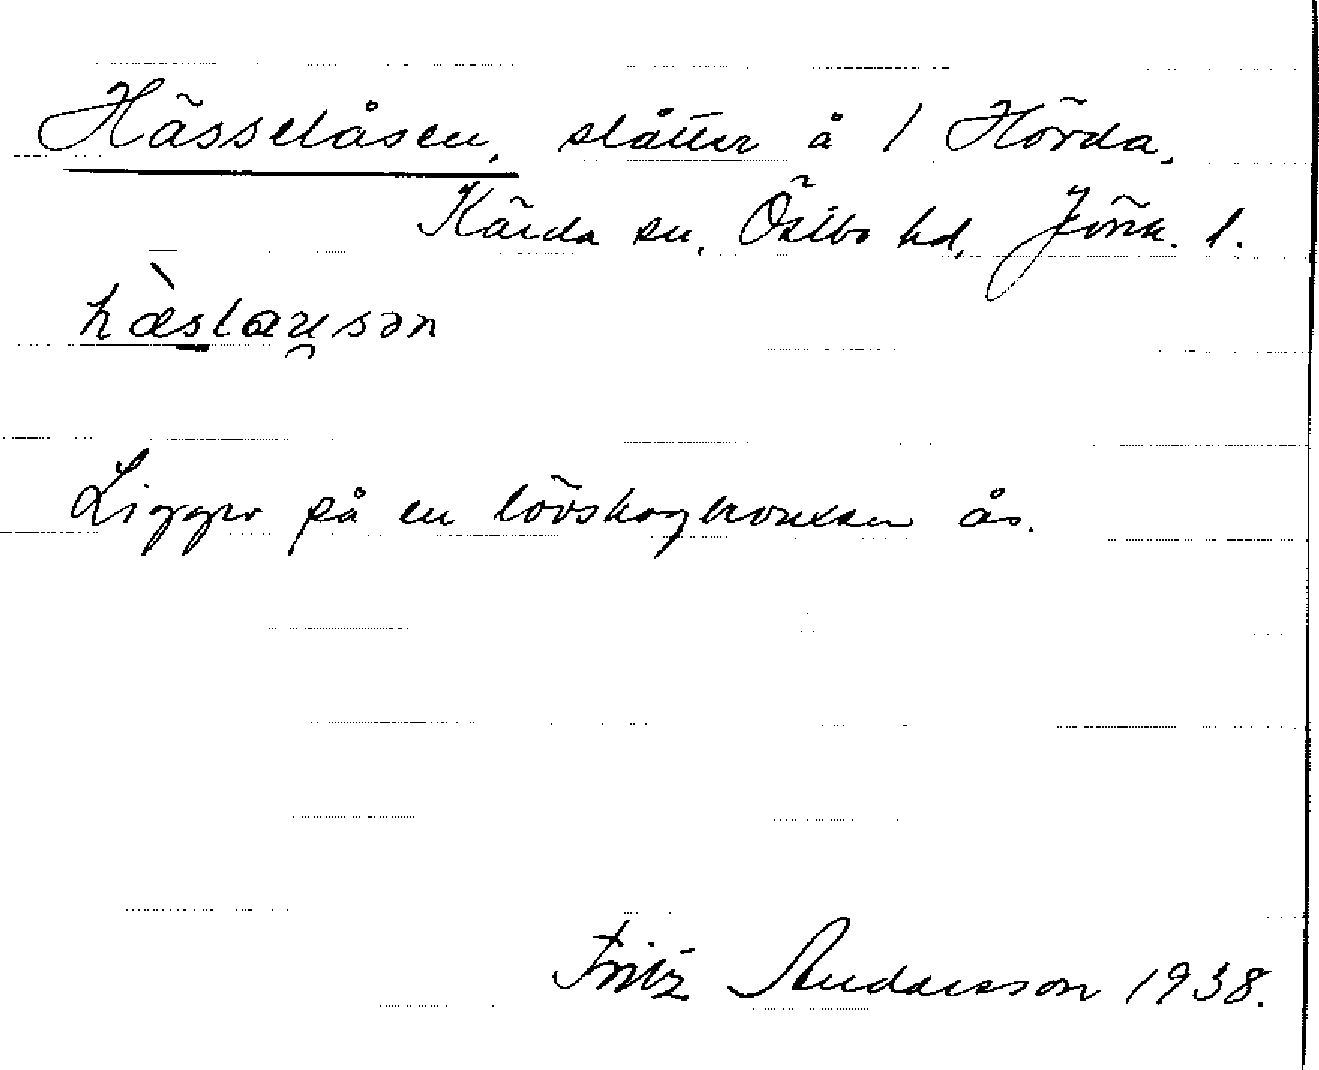 Hässelåsen, slåtter å 1 Hörda,
Kärda sn, Östbo hd, Jönk. l.
Ligger på en lövskogbevuxen ås.
Fritz Andersson 1938.